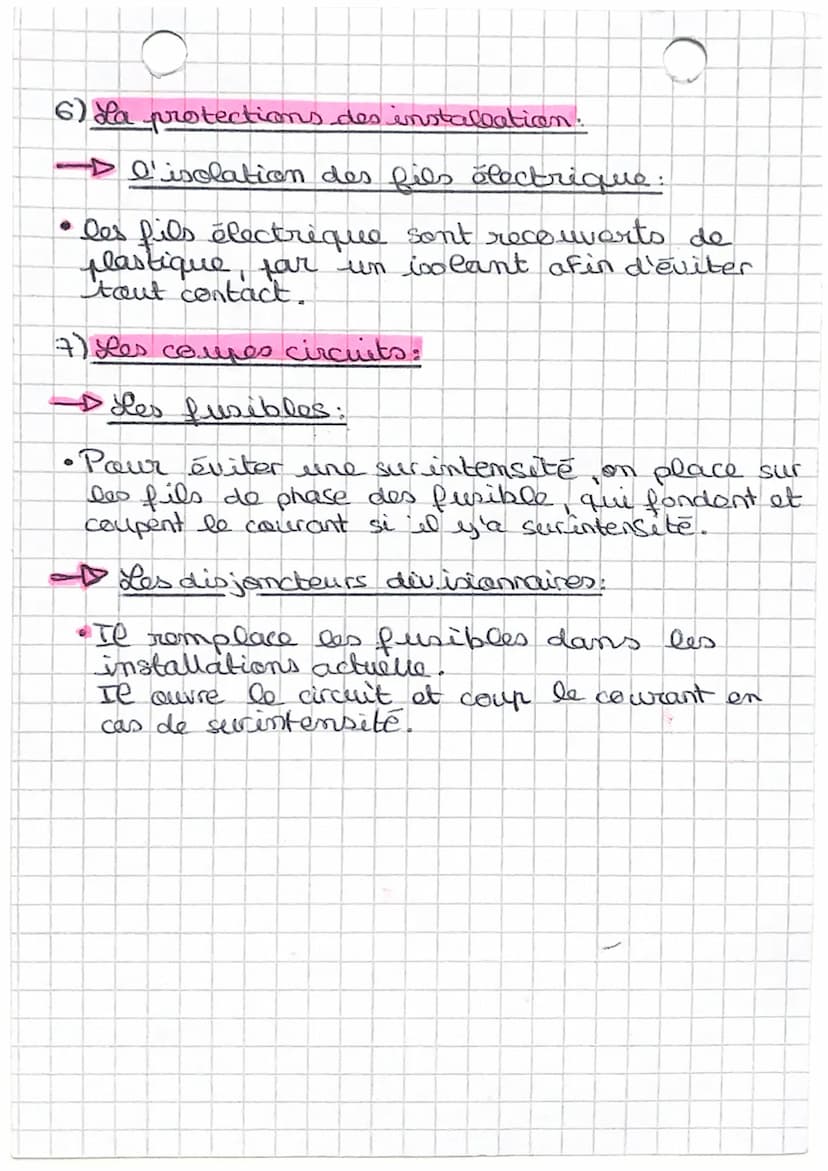 6) La protections des installation.
→ L'isolation des fils électrique :
• Les fils électrique sont recouverts de
plastique, par un isolant afin d'éviter
tout contact.
7) Les coupes circuits :
→ Les fusibles :
• Pour éviter une surintensité, on place sur
les fils de phase des fusible, qui fondent et
coupent le courant si il y'a surintensité.
→ Les disjoncteurs divisionnaires :
• Il remplace les fusibles dans les
installations actuelle.
Il ouvre le circuit et coup le courant en
cas de surintensité.